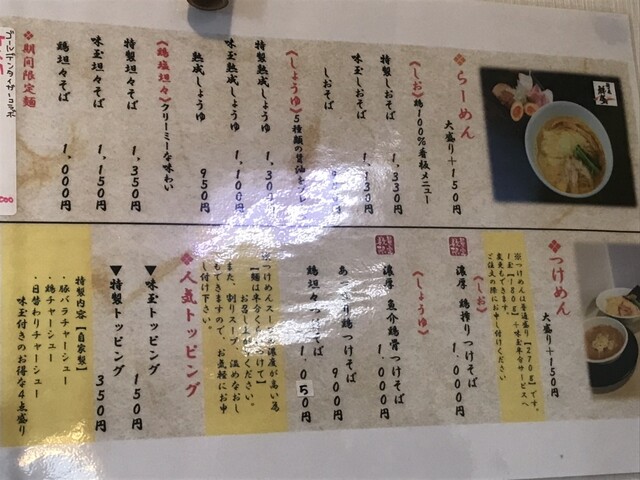 らーめん
大盛り+150円
(しお)鶏100%看板メニュー
特製しおそば 1,330円
味玉しおそば 1,130円
しおそば
(しょうゆ)5種類の醤油をブレ
特製熟成しょうゆ 1,300円
味玉熟成しょうゆ 1,100円
熟成しょうゆ 950円
(鶏塩坦々)クリーミーな味わい
特製坦々そば 1,350円
味玉坦々そば 1,150円
鶏坦々そば 1,000円
期間限定麺
つけめん
大盛り+150円
※つけめんは普通盛り【270g】です。
1玉【180g】+味玉半分サービスへ
変更もできます。
ご注文の際にお申し付けください
(しお)
濃厚 鶏搾りつけそば 1,000円
(しょうゆ)
濃厚 魚介鶏骨つけそば 1,000円
鶏つけそば 900円
鶏坦々つけそば 1,050円
※つけめんスープの濃度が高い為
【麺は半分くらいつけて】
お召し上がりください。
また、割りスープ、温めなおし
もできますので、お気軽にお申
し付け下さい。
人気トッピング
▼味玉トッピング 150円
▼特製トッピング 350円
特製内容【自家製】
・豚バラチャーシュー
・鶏チャーシュー
・日替わりチャーシュー
味玉付きのお得な4点盛り